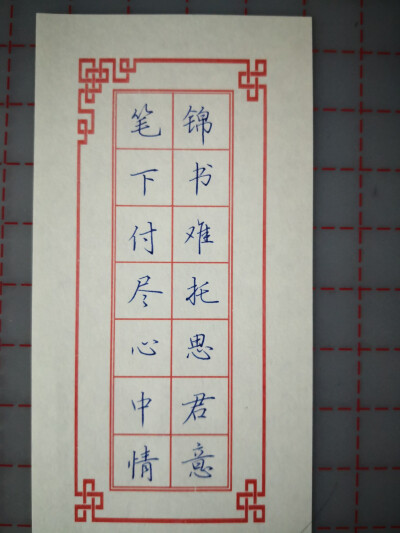 锦书难托思君意
笔下付尽心中情